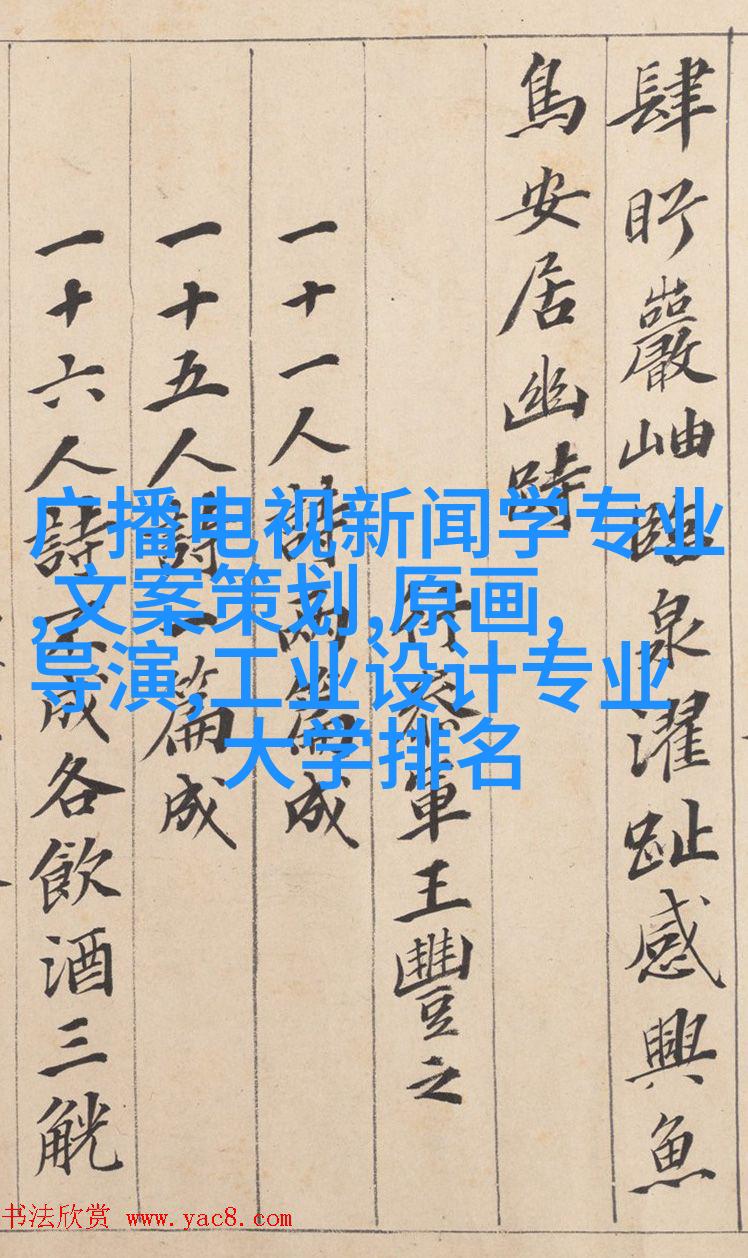 肆眄巖岫臨泉濯趾感興魚
鳥安居幽跱
行參軍王豐之
一十一人詩兩篇成
一十五人詩一篇成
一十六人詩不成各飲酒三觥
广播电视新闻学专业
,文案策划,原画,
导演,工业设计专业
大学排名
书法欣赏 www.yac8.com